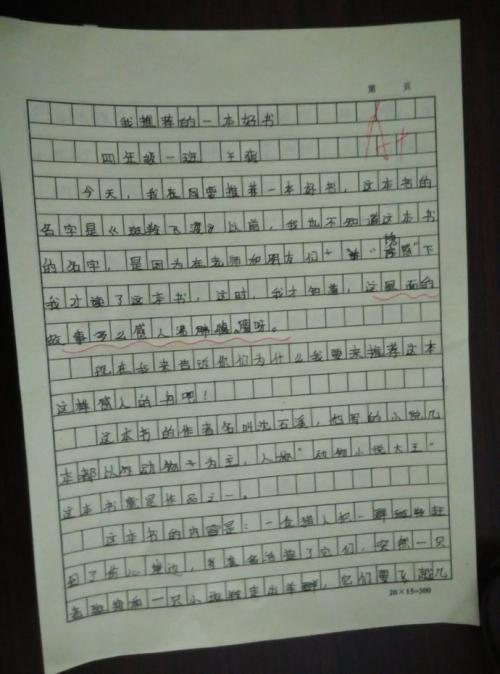 第 页
我推荐的一本好书
A+
四年级一班 王
今天，我在要推荐一本好书，这本书的
名字是《斑羚飞渡》以前，我也不知道这本书
的名字，是因为在老师和朋友们下
我才读了这本书，这时，我才知道，这里面的
故事多么感人呀。
现在我来告诉你们为什么我要来推荐这本
这样感人的书吧！
这本书的作者名叫沈石溪，他写的小说几
本都以动物为主，人称“动物小说大王”
这本书就是作品之一。
这本书的内容是：一位猎人把一群斑羚赶
到了伤心崖边，了它们，突然一只
老斑羚和一只小斑羚走出羊群，它们要飞越几
20×15=300